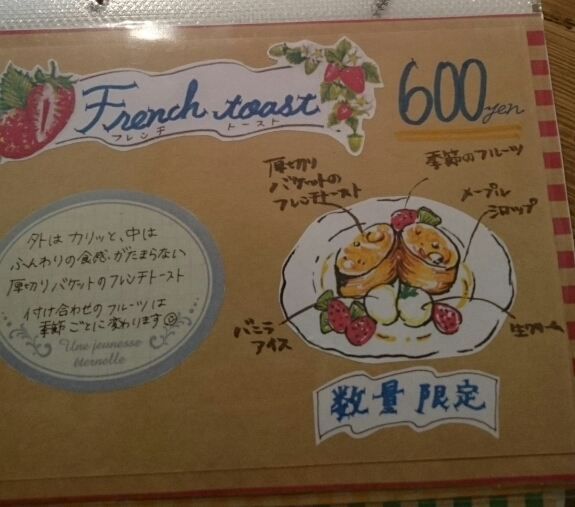 French toast
フレンチ トースト
600 yen
厚切り
バケットの
フレンチトースト
季節のフルーツ
メープル
シロップ
外は カリッと、中は
ふんわりの食感がたまらない
厚切りバケットのフレンチトースト
付け合わせのフルーツは
季節ごとに変わります
Une jeunesse
éternelle
バニラ
アイス
生クリーム
数量限定